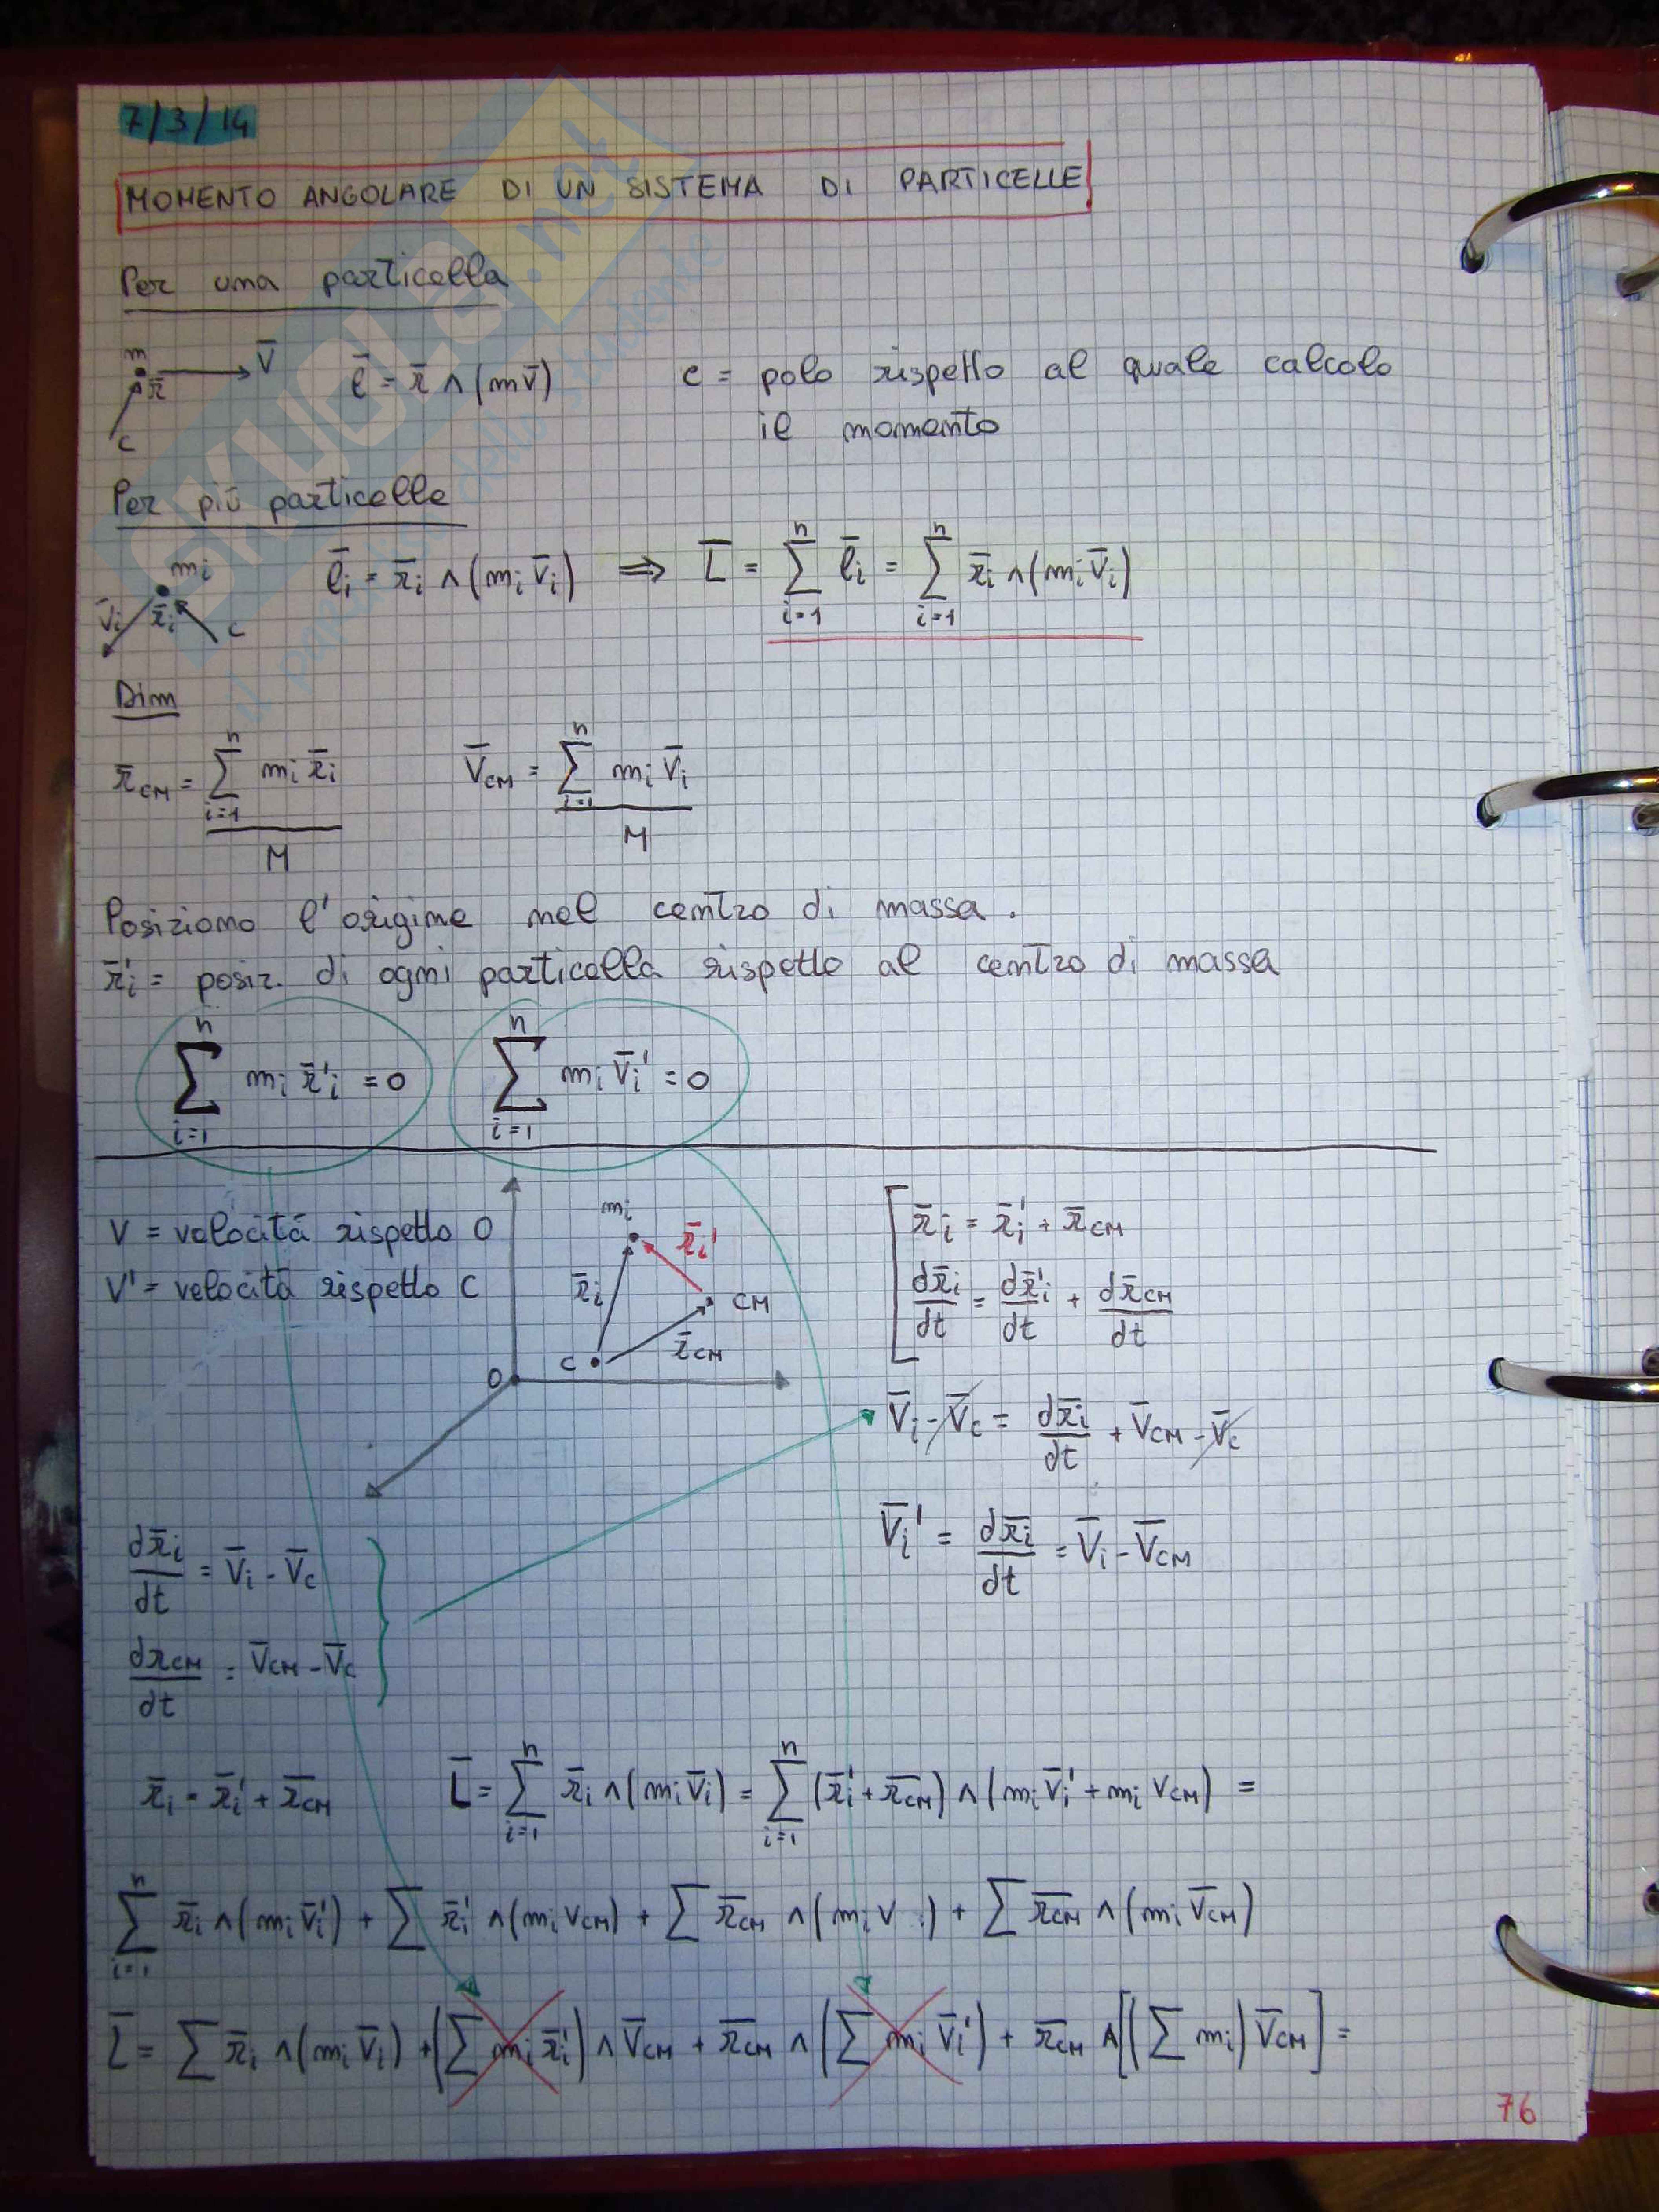 7/3/14
MOMENTO ANGOLARE DI UN SISTEMA DI PARTICELLE
Per una particella
m r̄ v̄ c
l̄ = r̄ ∧ (m v̄)
c = polo rispetto al quale calcolo
il momento
Per più particelle
mᵢ v̄ᵢ r̄ᵢ c
l̄ᵢ = r̄ᵢ ∧ (mᵢ v̄ᵢ) ⟹ L̄ = ∑ᵢ₌₁ⁿ l̄ᵢ = ∑ᵢ₌₁ⁿ r̄ᵢ ∧ (mᵢ v̄ᵢ)
Dim
r̄_CM = ∑ᵢ₌₁ⁿ mᵢ r̄ᵢ / M    V̄_CM = ∑ᵢ₌₁ⁿ mᵢ V̄ᵢ / M
Posiziono l'origine nel centro di massa.
r̄ᵢ' = posiz. di ogni particella rispetto al centro di massa
∑ᵢ₌₁ⁿ mᵢ r̄'ᵢ = 0    ∑ᵢ₌₁ⁿ mᵢ V̄ᵢ' = 0
V = velocità rispetto O
V' = velocità rispetto C
mᵢ r̄ᵢ' r̄ᵢ CM r̄_CM C O
r̄ᵢ = r̄ᵢ' + r̄_CM
dr̄ᵢ/dt = dr̄ᵢ'/dt + dr̄_CM/dt
V̄ᵢ - V̄c = dr̄ᵢ/dt + V̄_CM - V̄c
V̄ᵢ' = dr̄ᵢ/dt = V̄ᵢ - V̄_CM
dr̄ᵢ/dt = V̄ᵢ - V̄c
dr_CM/dt = V̄_CM - V̄c
r̄ᵢ = r̄ᵢ' + r̄_CM    L̄ = ∑ᵢ₌₁ⁿ r̄ᵢ ∧ (mᵢ V̄ᵢ) = ∑ᵢ₌₁ⁿ (r̄ᵢ' + r̄_CM) ∧ (mᵢ V̄ᵢ' + mᵢ V_CM) =
∑ᵢ₌₁ⁿ r̄ᵢ ∧ (mᵢ V̄ᵢ') + ∑ r̄ᵢ' ∧ (mᵢ V_CM) + ∑ r̄_CM ∧ (mᵢ V ᵢ) + ∑ r̄_CM ∧ (mᵢ V̄_CM)
L̄ = ∑ r̄ᵢ ∧ (mᵢ V̄ᵢ) + (∑ mᵢ r̄ᵢ') ∧ V̄_CM + r̄_CM ∧ (∑ mᵢ V̄ᵢ') + r̄_CM ∧ [(∑ mᵢ) V̄_CM] =
76
SKUOLA.net
il paradiso dello studente